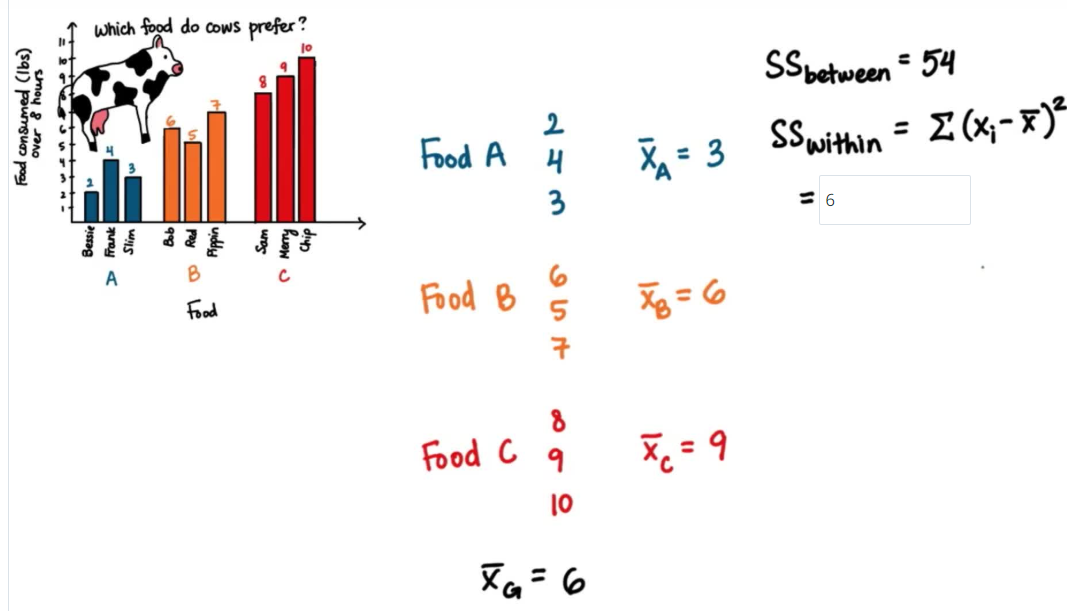 Which food do cows prefer?
Food consumed (lbs)
over 8 hours
11
10
9
8
7
6
5
4
3
2
1
2
4
3
6
5
7
8
9
10
Bessie
Frank
Slim
Bob
Red
Pippin
Sam
Merry
Chip
A
B
C
Food
Food A
2
4
3
x̄A = 3
Food B
6
5
7
x̄B = 6
Food C
8
9
10
x̄C = 9
x̄G = 6
SSbetween = 54
SSwithin = Σ(xi - x̄)²
= 6